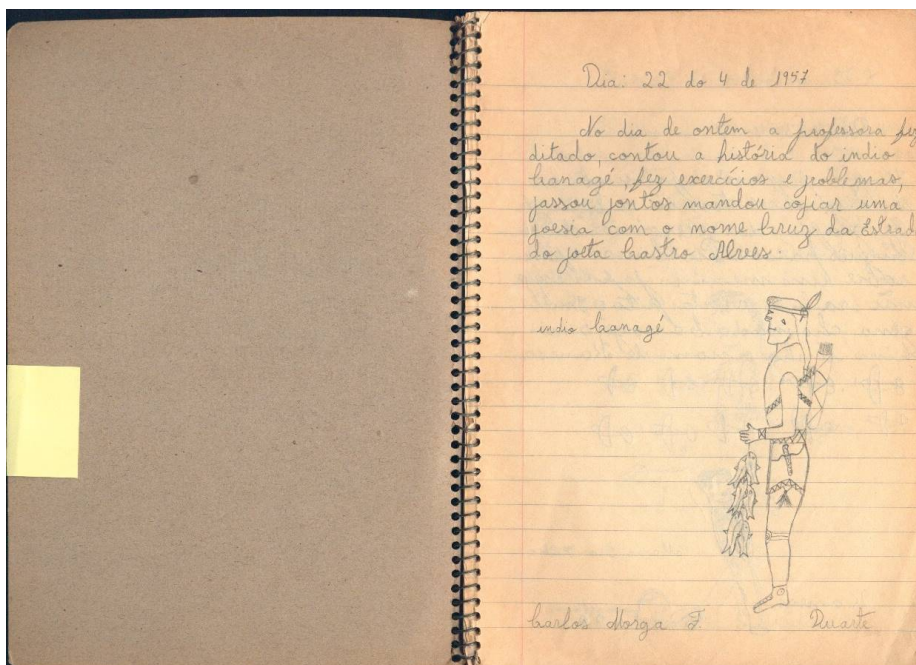 Dia: 22 do 4 de 1957
No dia de ontem a professora fez
ditado, contou a história do indio
Canagé, fez exercícios e problemas,
passou pontos mandou copiar uma
poesia com o nome Cruz da Estrad
do poeta Castro Alves.
indio Canagé
Carlos Morga F. Duarte